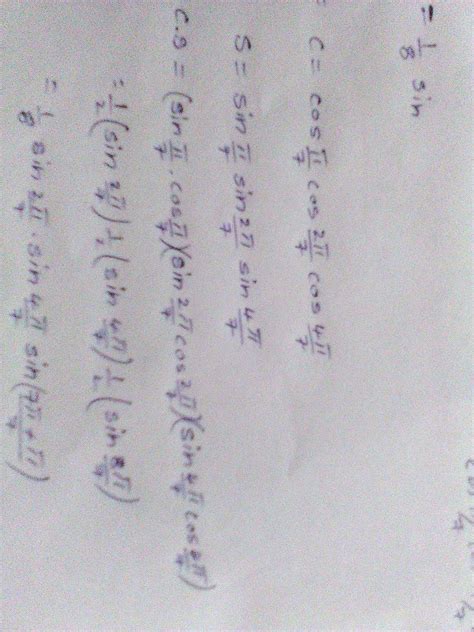 = 1/8 sin
C = cos π/7 cos 2π/7 cos 4π/7
S = sin π/7 sin 2π/7 sin 4π/7
C.S = (sin π/7 . cos π/7)(sin 2π/7 cos 2π/7)(sin 4π/7 cos 4π/7)
= 1/2 (sin 2π/7) 1/2 (sin 4π/7) 1/2 (sin 8π/7)
= 1/8 sin 2π/7 . sin 4π/7 sin (7π+π/7)